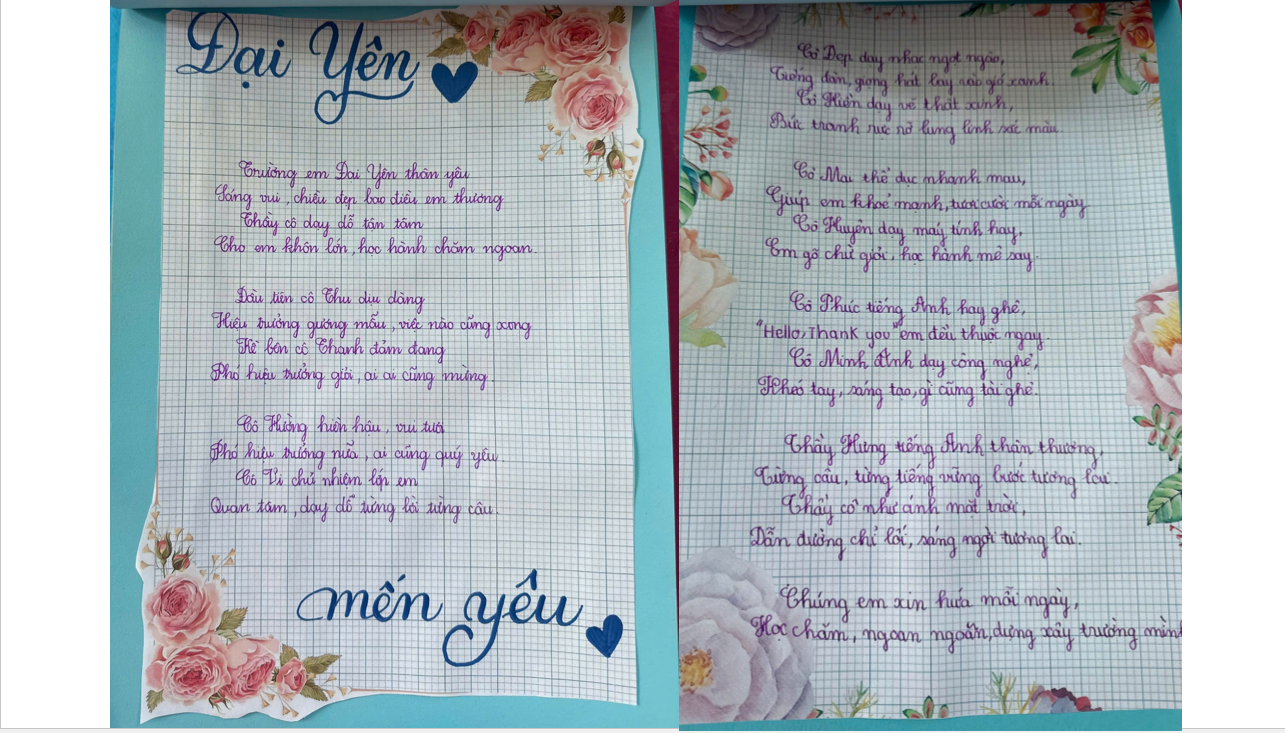 Đại Yên
Trường em Đại Yên thân yêu
Sáng vui, chiều đẹp bao điều em thương
Thầy cô dạy dỗ tận tâm
Cho em khôn lớn, học hành chăm ngoan.
Đầu tiên cô Thu dịu dàng
Hiệu trưởng gương mẫu, việc nào cũng xong
Kế bên cô Thanh đảm đang
Phó hiệu trưởng giỏi, ai ai cũng mừng.
Cô Hường hiền hậu, vui tươi
Phó hiệu trưởng nữa, ai cũng quý yêu.
Cô Vi chủ nhiệm lớp em
Quan tâm, dạy dỗ từng lời từng câu.
mến yêu
Cô Dẹp dạy nhạc ngọt ngào,
Tiếng đàn, giọng hát bay vào gió xanh.
Cô Hiền dạy vẽ thật xinh,
Bức tranh rực rỡ lung linh sắc màu.
Cô Mai thể dục nhanh mau,
Giúp em khoẻ mạnh, tươi cười mỗi ngày
Cô Huyền dạy máy tính hay,
Em gõ chữ giỏi, học hành mê say.
Cô Phúc tiếng Anh hay ghê,
"Hello, Thank you" em đều thuộc ngay.
Cô Minh Anh dạy công nghệ,
Khéo tay, sáng tạo, gì cũng tài ghê.
Thầy Hưng tiếng Anh thân thương,
Từng câu, từng tiếng vững bước tương lai.
Thầy cô như ánh mặt trời,
Dẫn đường chỉ lối, sáng ngời tương lai.
Chúng em xin hứa mỗi ngày,
Học chăm, ngoan ngoãn, dựng xây trường mình